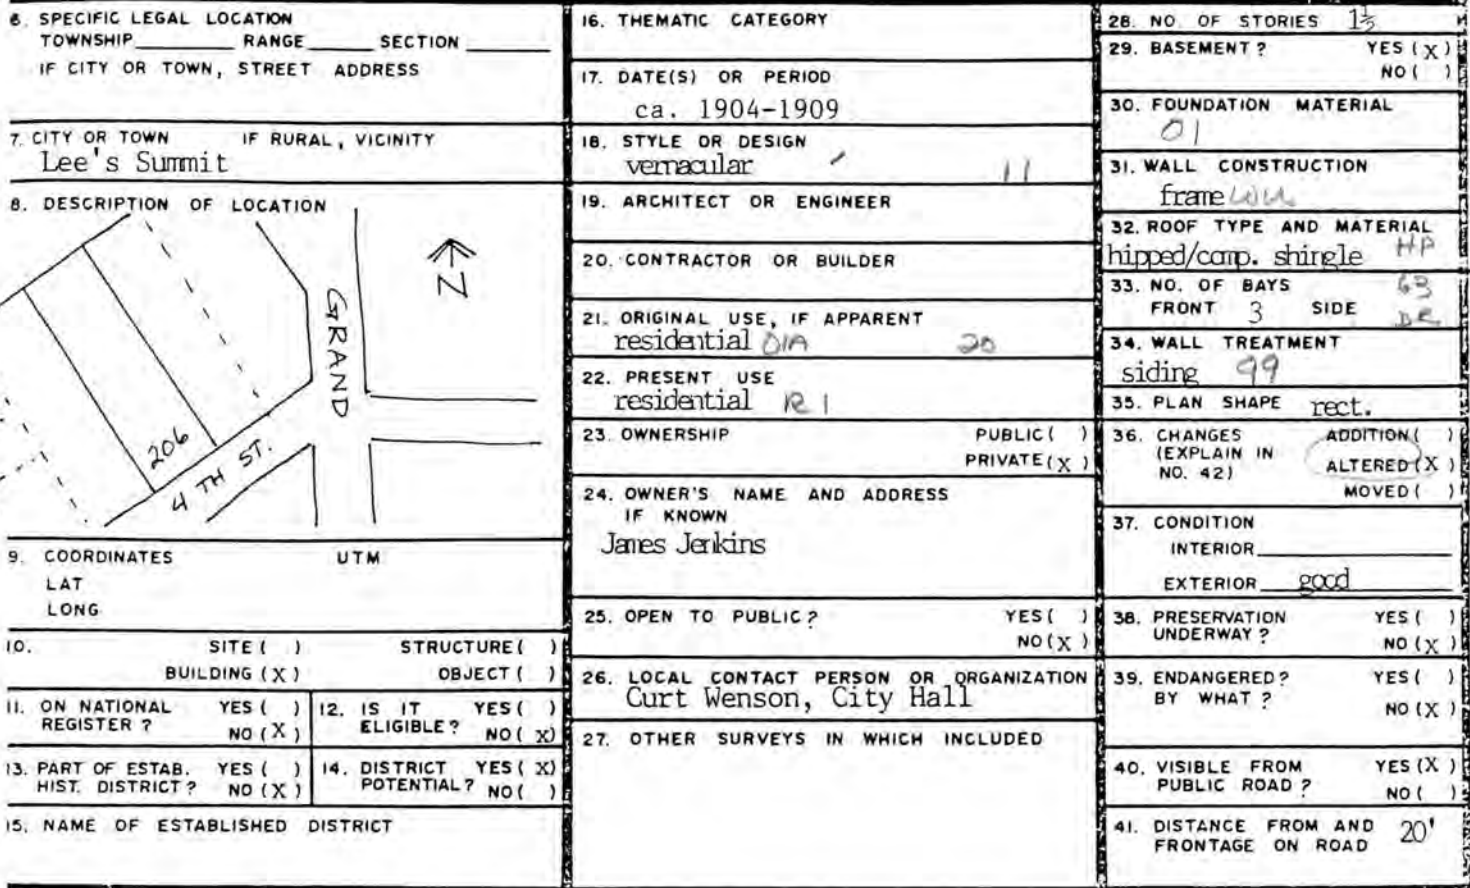 6. SPECIFIC LEGAL LOCATION
TOWNSHIP RANGE SECTION
IF CITY OR TOWN, STREET ADDRESS
7. CITY OR TOWN IF RURAL, VICINITY
Lee's Summit
8. DESCRIPTION OF LOCATION
GRAND
N
206
4 TH ST.
9. COORDINATES UTM
LAT
LONG
10. SITE ( ) STRUCTURE ( )
BUILDING (X) OBJECT ( )
11. ON NATIONAL YES ( )
REGISTER ? NO (X)
12. IS IT YES ( )
ELIGIBLE? NO ( X)
13. PART OF ESTAB. YES ( )
HIST. DISTRICT ? NO (X)
14. DISTRICT YES ( X)
POTENTIAL? NO ( )
15. NAME OF ESTABLISHED DISTRICT
16. THEMATIC CATEGORY
17. DATE(S) OR PERIOD
ca. 1904-1909
18. STYLE OR DESIGN
vernacular 11
19. ARCHITECT OR ENGINEER
20. CONTRACTOR OR BUILDER
21. ORIGINAL USE, IF APPARENT
residential 01A 20
22. PRESENT USE
residential R1
23. OWNERSHIP PUBLIC ( )
PRIVATE (X)
24. OWNER'S NAME AND ADDRESS
IF KNOWN
James Jenkins
25. OPEN TO PUBLIC? YES ( )
NO (X)
26. LOCAL CONTACT PERSON OR ORGANIZATION
Curt Wenson, City Hall
27. OTHER SURVEYS IN WHICH INCLUDED
28. NO. OF STORIES 1½
29. BASEMENT ? YES (X)
NO ( )
30. FOUNDATION MATERIAL
01
31. WALL CONSTRUCTION
frame
32. ROOF TYPE AND MATERIAL
hipped/comp. shingle HP
33. NO. OF BAYS 63
FRONT 3 SIDE
34. WALL TREATMENT
siding 99
35. PLAN SHAPE rect.
36. CHANGES ADDITION ( )
(EXPLAIN IN
NO. 42) ALTERED (X)
MOVED ( )
37. CONDITION
INTERIOR
EXTERIOR good
38. PRESERVATION YES ( )
UNDERWAY ? NO (X)
39. ENDANGERED? YES ( )
BY WHAT ? NO (X)
40. VISIBLE FROM YES (X)
PUBLIC ROAD ? NO ( )
41. DISTANCE FROM AND 20'
FRONTAGE ON ROAD